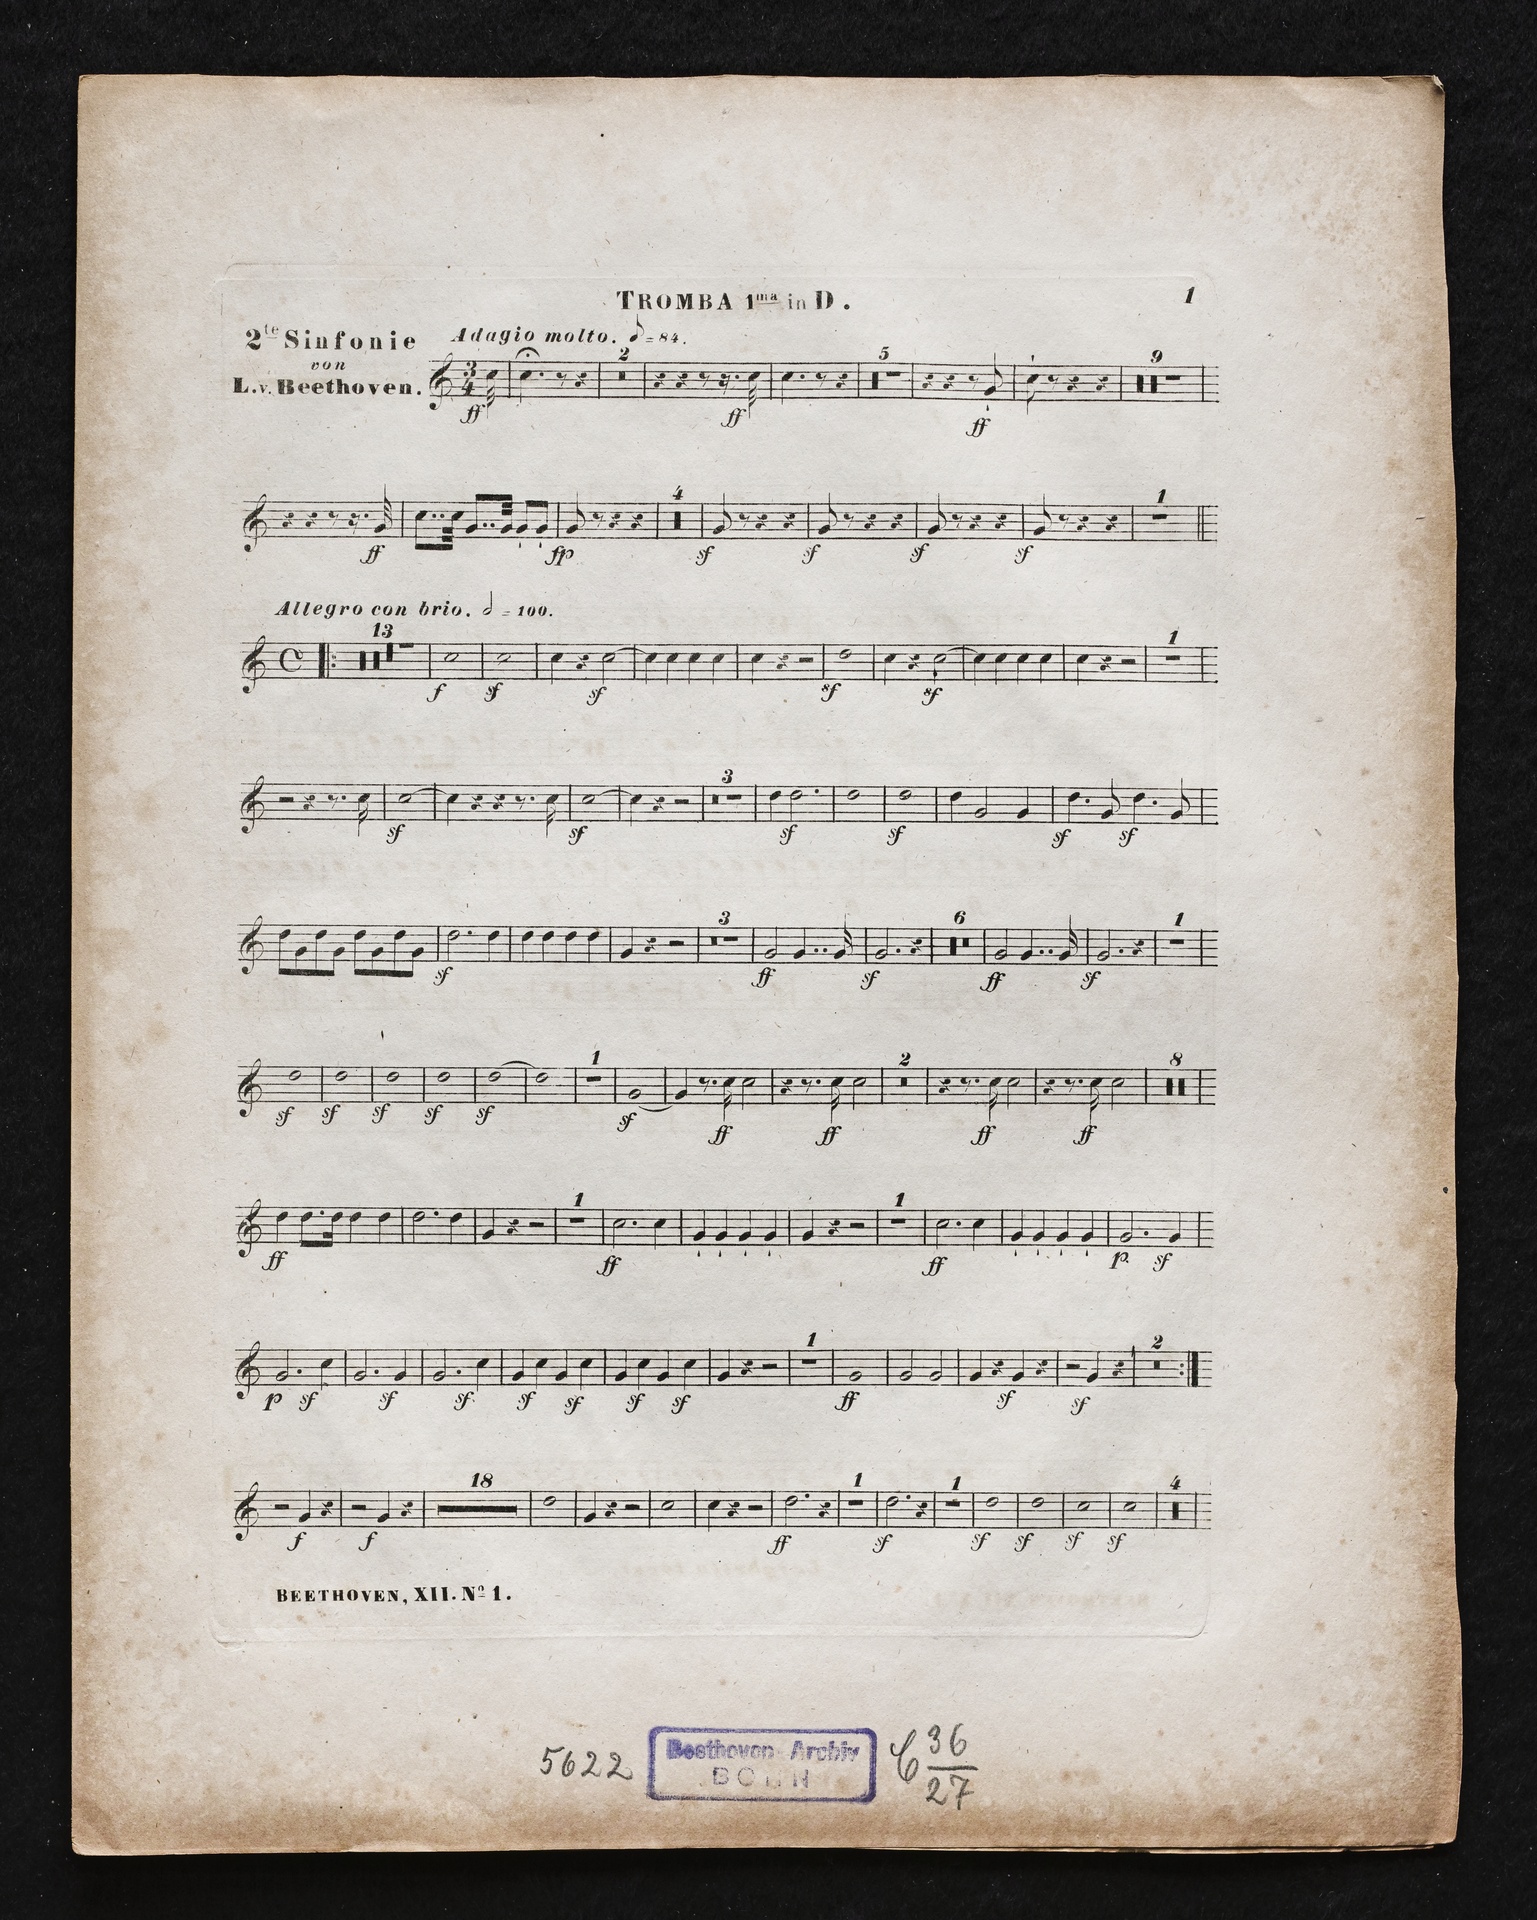 TROMBA 1ma in D.
1
2te Sinfonie
von
L.v. Beethoven.
Adagio molto. ♪ = 84.
2 5 9
ff ff ff
4 1
ff fp sf sf sf sf
Allegro con brio. 𝅗𝅥 = 100.
13 1
f sf sf sf sf
3
sf sf sf sf sf sf
3 6 1
sf ff sf ff sf
1 2 8
sf sf sf sf sf sf ff ff ff ff
1 1
ff ff ff p. sf
1 2
p sf sf sf sf sf sf sf ff sf sf
18 1 1 4
f f ff sf sf sf sf sf
BEETHOVEN, XII. No 1.
5622
Beethoven-Archiv
BONN
C 36
27